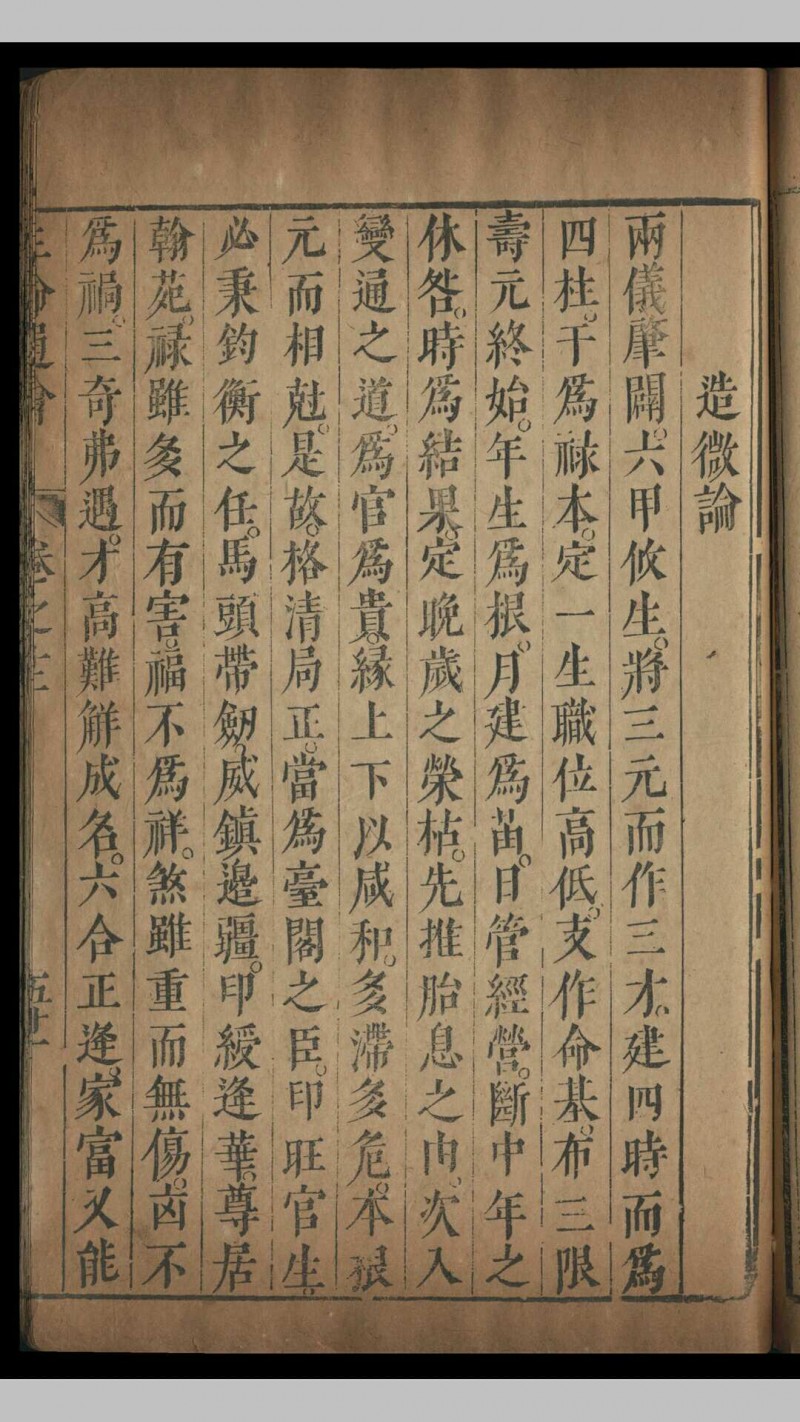 造微論
兩儀肇闢。六甲攸生。將三元而作三才。建四時而爲
四柱。干爲祿本。定一生職位高低。支作命基。布三限
壽元終始。年生爲根。月建爲苗。日管經營。斷中年之
休咎。時爲結果。定晚歲之榮枯。先推胎息之由。次入
變通之道。爲官爲貴。縁上下以咸和。多滯多危。本根
元而相尅。是故。格清局正。當爲臺閣之臣。印旺官生。
必秉鈞衡之任。馬頭帶劒。威鎮邊疆。印綬逢華。尊居
翰苑。祿雖多而有害。福不爲祥。煞雖重而無傷。凶不
爲禍。三奇弗遇。才高難觧成名。六合正逢。家富又能
三命通會 卷之十二